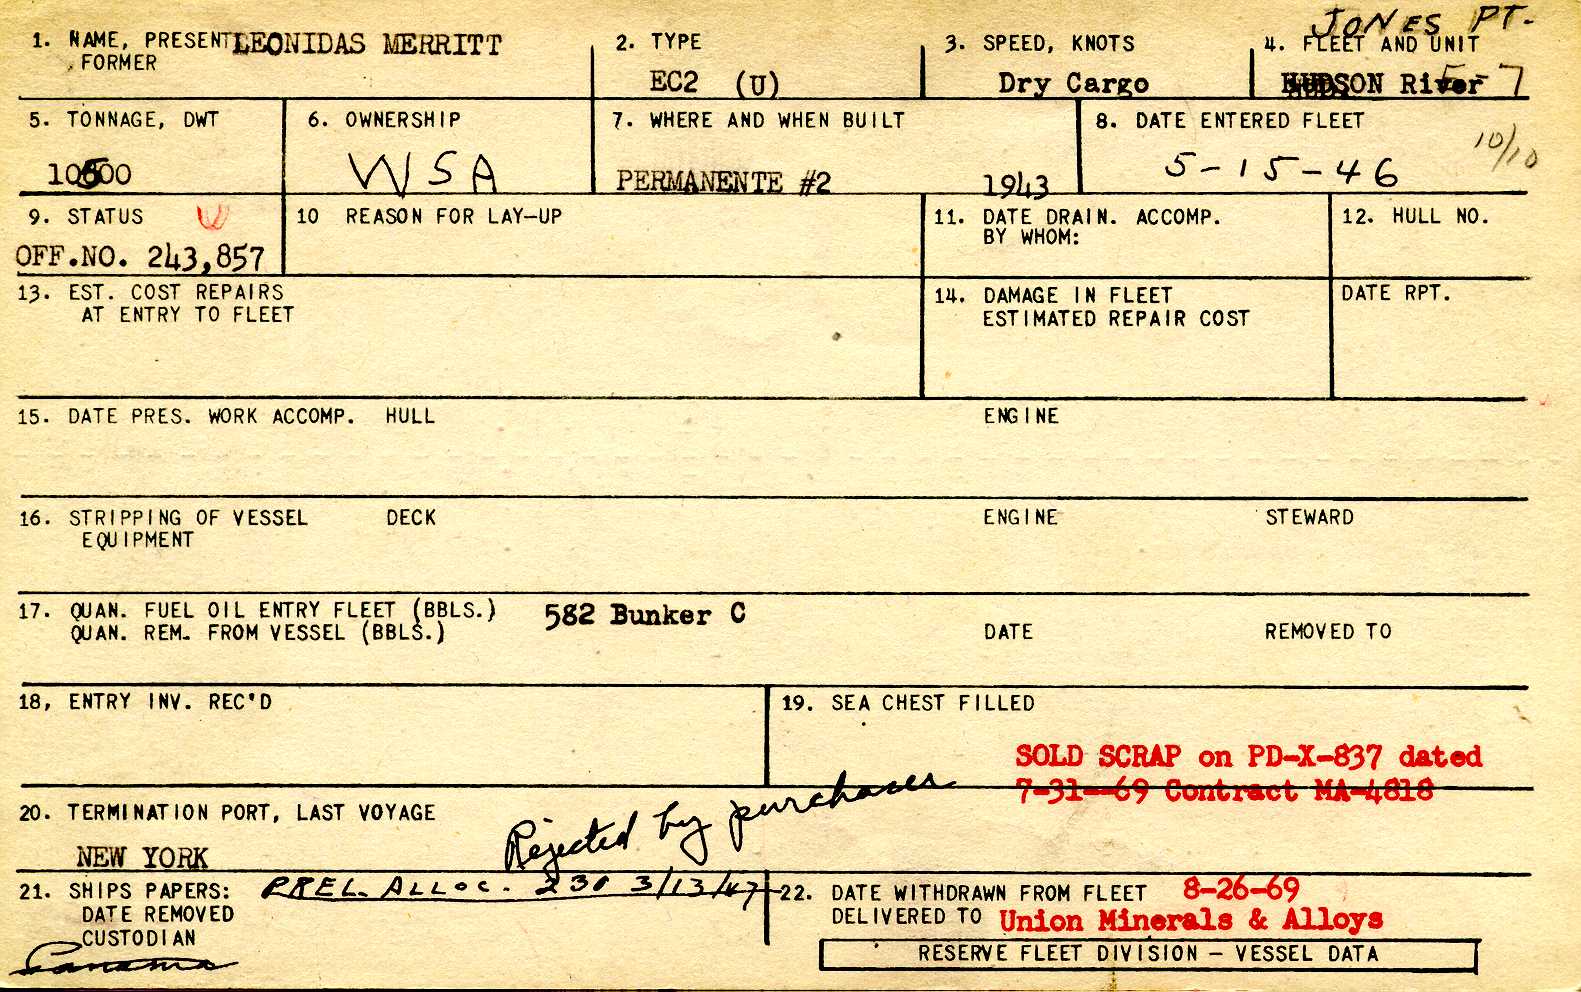 JONES PT.
1. NAME, PRESENT LEONIDAS MERRITT 2. TYPE 3. SPEED, KNOTS 4. FLEET AND UNIT
FORMER EC2 (U) Dry Cargo HUDSON River 5-7
5. TONNAGE, DWT 6. OWNERSHIP 7. WHERE AND WHEN BUILT 8. DATE ENTERED FLEET
10500 WSA PERMANENTE #2 1943 5-15-46 10/10
9. STATUS U 10 REASON FOR LAY-UP 11. DATE DRAIN. ACCOMP. 12. HULL NO.
BY WHOM:
OFF.NO. 243,857
13. EST. COST REPAIRS 14. DAMAGE IN FLEET DATE RPT.
AT ENTRY TO FLEET ESTIMATED REPAIR COST
15. DATE PRES. WORK ACCOMP. HULL ENGINE
16. STRIPPING OF VESSEL DECK ENGINE STEWARD
EQUIPMENT
17. QUAN. FUEL OIL ENTRY FLEET (BBLS.) 582 Bunker C
QUAN. REM. FROM VESSEL (BBLS.) DATE REMOVED TO
18, ENTRY INV. REC'D 19. SEA CHEST FILLED
SOLD SCRAP on PD-X-837 dated
7-31--69 Contract MA-4818
20. TERMINATION PORT, LAST VOYAGE Rejected by purchaser
NEW YORK
21. SHIPS PAPERS: PREL. ALLOC. 230 3/13/47 22. DATE WITHDRAWN FROM FLEET 8-26-69
DATE REMOVED DELIVERED TO Union Minerals & Alloys
CUSTODIAN
Panama RESERVE FLEET DIVISION – VESSEL DATA